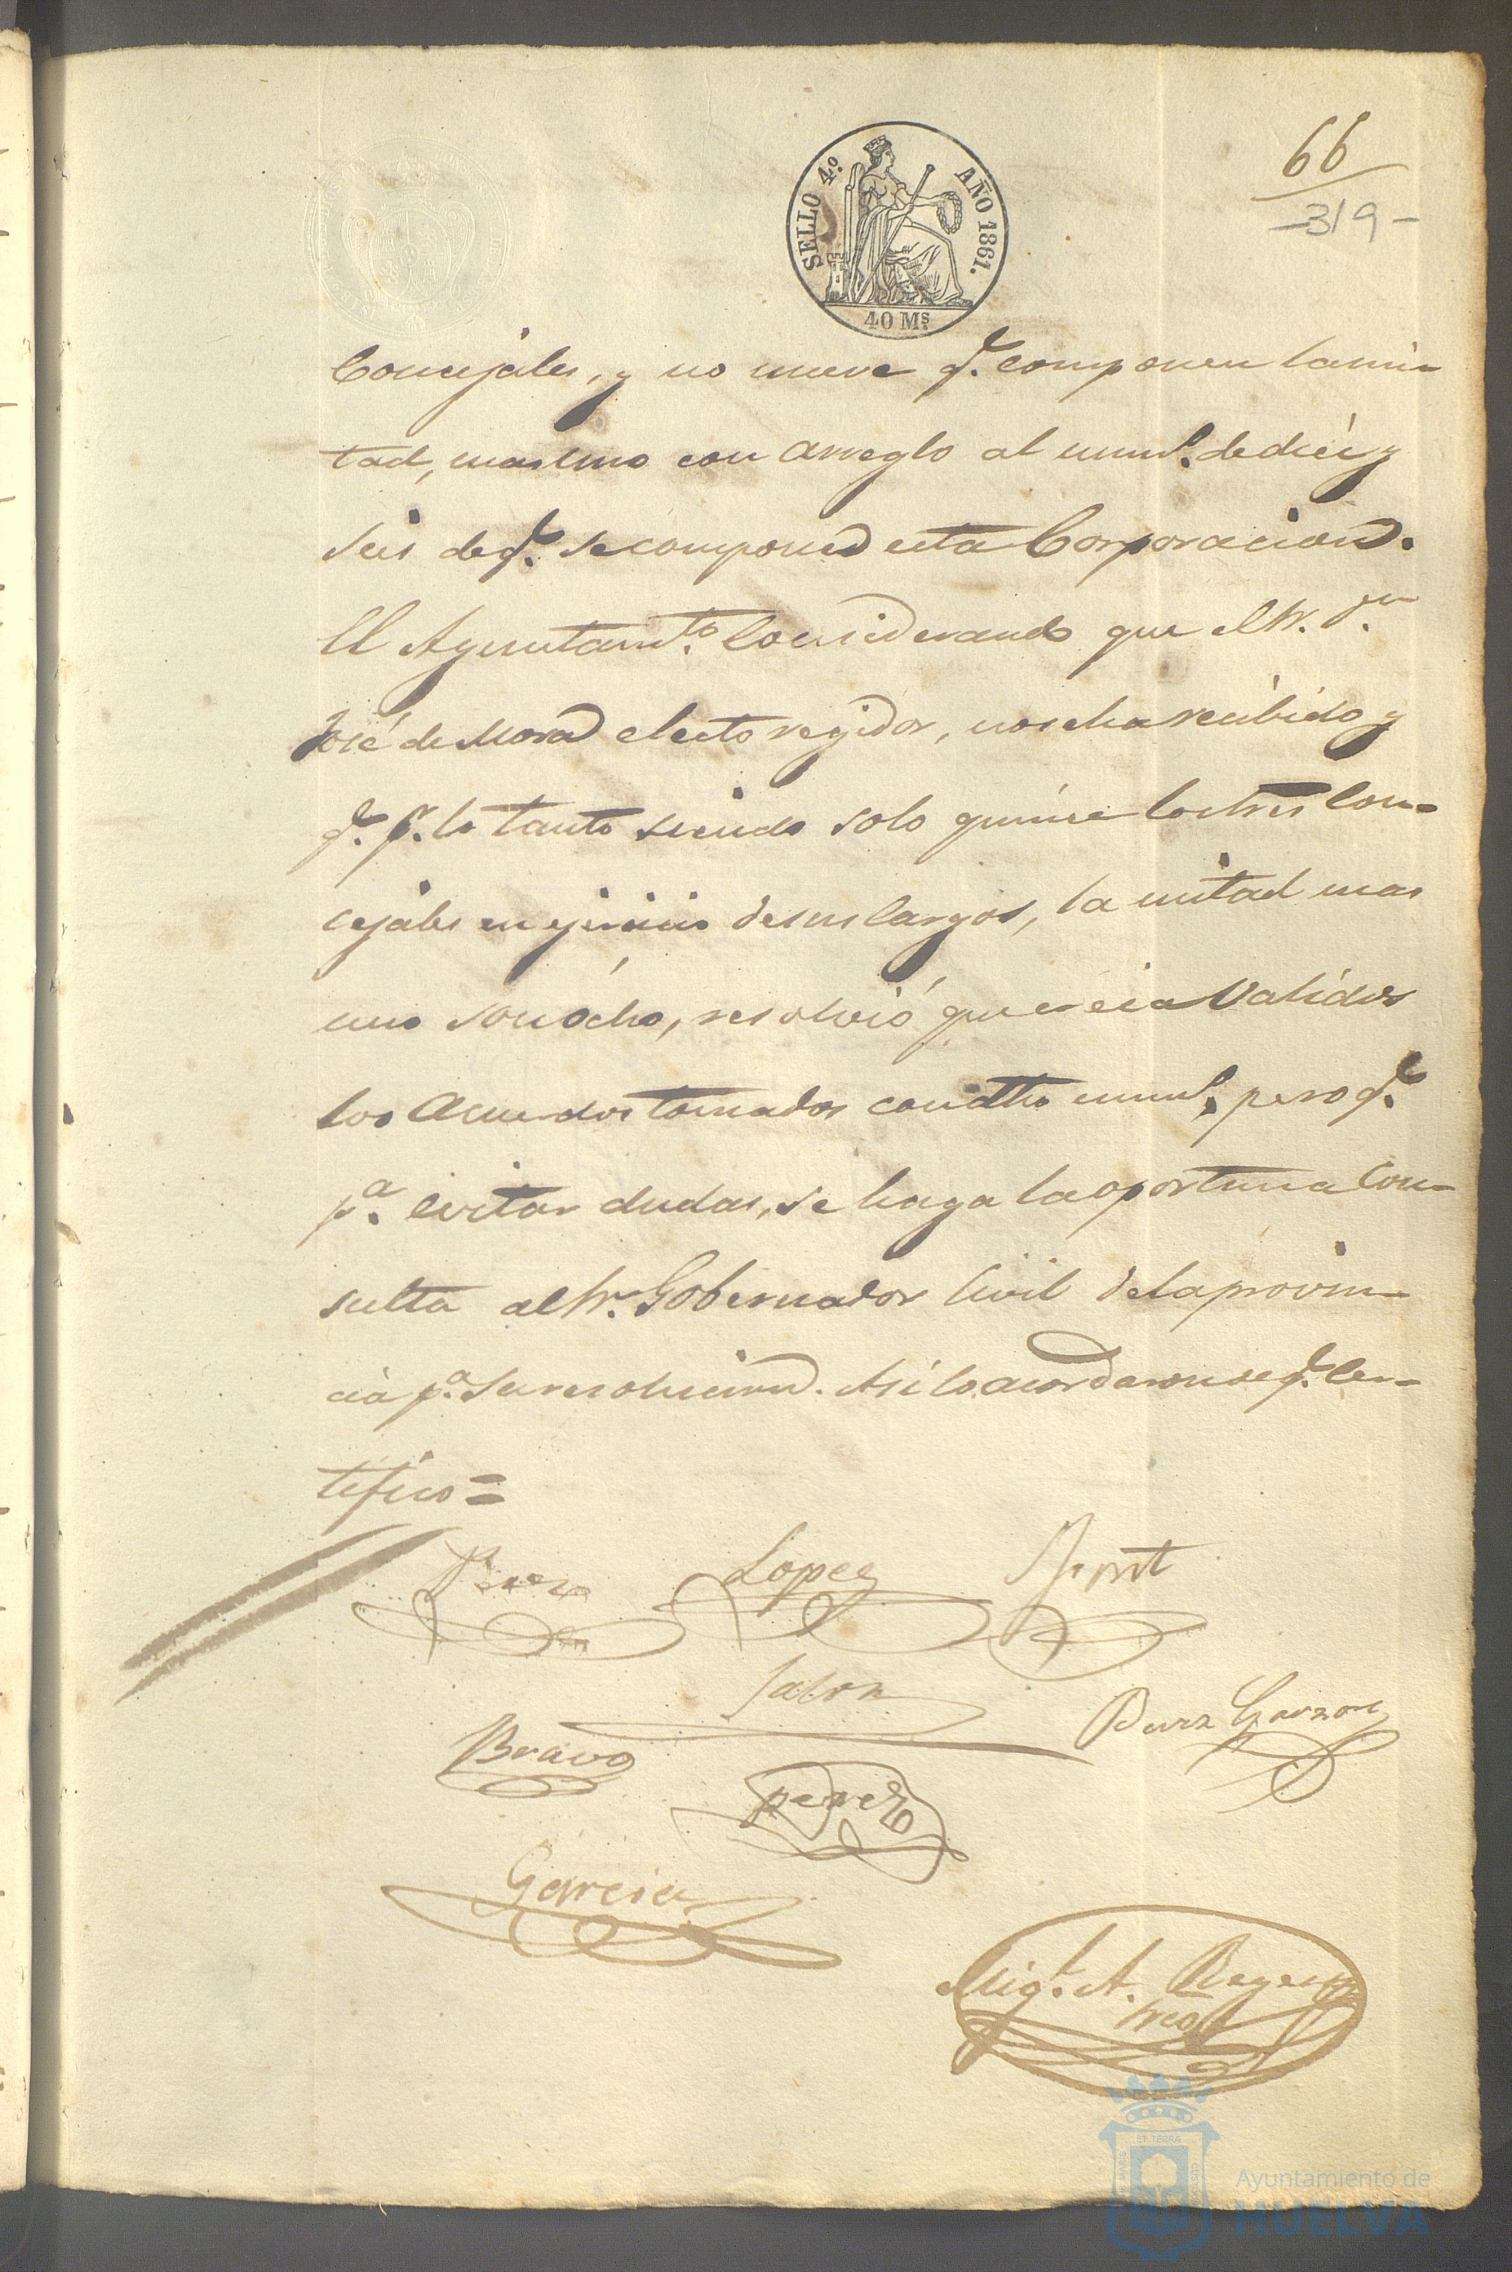 66
-319-
SELLO 4º. AÑO 1861.
40 Ms.
Concejales, y no nueve q.e componen la mi-
tad, mas uno con arreglo al num.o de diez y
seis de q.e se compone esta Corporacion.
El Ayuntam.to Considerando que el Sr. D.n
José de Mora electo regidor, no se ha recibido y
q.e p.r lo tanto siendo solo quince los tres Con-
cejales en ejercicio de sus cargos, la mitad mas
uno son ocho, resolvió que creia validos
los acuerdos tomados con dho num.o, pero q.e
p.a evitar dudas, se haga la oportuna Con-
sulta al Sr. Gobernador Civil de la provin-
cia p.a su resolucion. Asi lo acordaron de q.e Cer-
tifico=
Perez Lopez
Jalon
Bravo Perez Garzon
perez
Garcia
Mig.l A. Reyes
Srio
ET TERRA
Ayuntamiento de
HUELVA